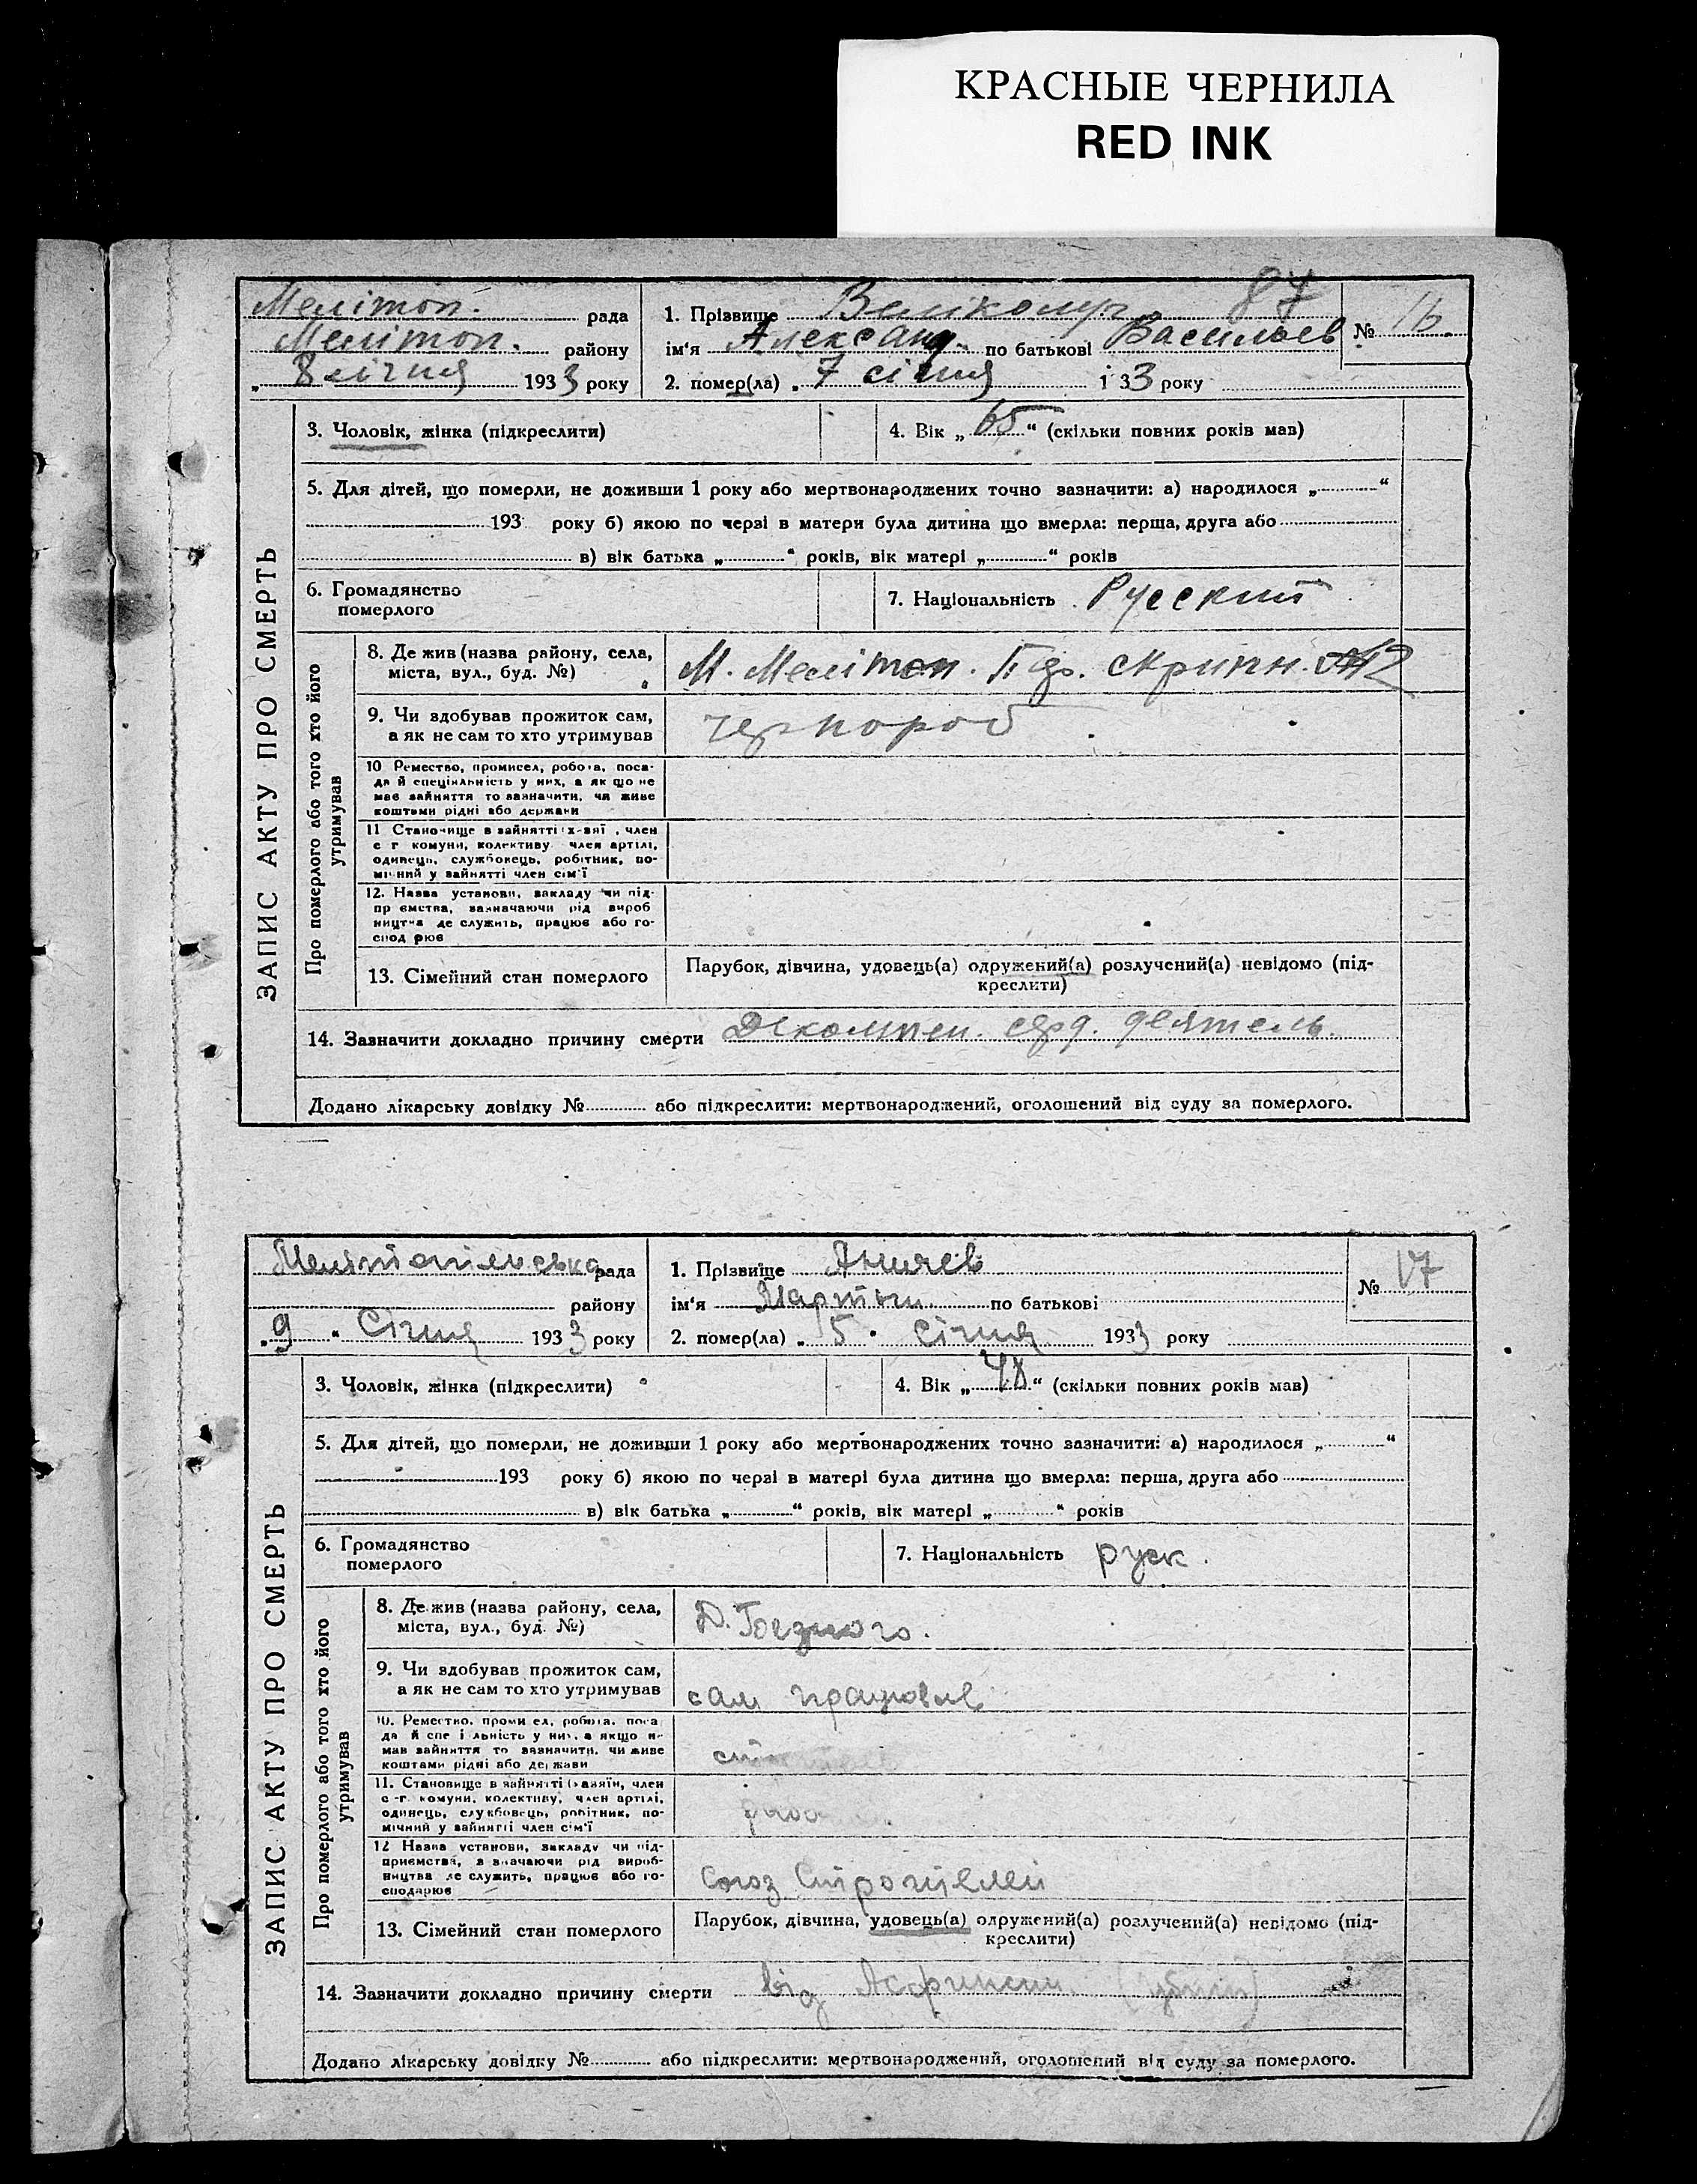 КРАСНЫЕ ЧЕРНИЛА
RED INK
87
Мелітоп. рада
Мелітоп. району
„ 8 січня 1933 року
1. Прізвище
ім'я Александ. по батькові Васильев
2. помер(ла) „ 7 січня 1 33 року
№ 16.
ЗАПИС АКТУ ПРО СМЕРТЬ
3. Чоловік, жінка (підкреслити)
4. Вік „ 65 “ (скільки повних років мав)
5. Для дітей, що померли, не доживши 1 року або мертвонароджених точно зазначити: а) народилося „ “
193 року б) якою по черзі в матери була дитина що вмерла: перша, друга або
в) вік батька „ “ років, вік матері „ “ років
6. Громадянство
померлого
7. Національність Русский
Про померлого або того хто його
утримував
8. Де жив (назва району, села,
міста, вул., буд. №)
М. Мелітоп. скрипн. 12
9. Чи здобував прожиток сам,
а як не сам то хто утримував
чернороб
10 Ремество, промисел, робота, поса-
да й спеціяльність у них, а як що не
мав зайняття то зазначити, чи живе
коштами рідні або держави
11 Становище в зайнятті член
с г комуни, колективу член артілі,
одинець, службовець, робітник, по-
мічний у зайнятті член сім'ї
12. Назва установи, закладу чи під-
пр ємства, зазначаючи рід вироб
ництва де служить, працює або го-
спод рює
13. Сімейний стан померлого
Парубок, дівчина, удовець(а) одружений(а) розлучений(а) невідомо (під-
креслити)
14. Зазначити докладно причину смерти Декомпен. серд. деятель.
Додано лікарську довідку № або підкреслити: мертвонароджений, оголошений від суду за померлого.
Мелітопільська рада
району
„ 9 “ Січня 1933 року
1. Прізвище
ім'я Мартын по батькові
2. помер(ла) „ 5 " Січня 1933 року
№ 17
ЗАПИС АКТУ ПРО СМЕРТЬ
3. Чоловік, жінка (підкреслити)
4. Вік „ 48 “ (скільки повних років мав)
5. Для дітей, що померли, не доживши 1 року або мертвонароджених точно зазначити: а) народилося „ “
193 року б) якою по черзі в матері була дитина що вмерла: перша, друга або
в) вік батька „ “ років, вік матері „ “ років
6. Громадянство
померлого
7. Національність руск.
Про померлого або того хто його
утримував
8. Де жив (назва району, села,
міста, вул., буд. №)
9. Чи здобував прожиток сам,
а як не сам то хто утримував
сам працював
10. Ремество, промисел, робота, поса
да й спеціяльність у них, а якщо не
мав зайняття то зазначити, чи живе
коштами рідні або держави
11. Становище в зайнятті (хазяїн, член
с -г. комуни, колективу, член артілі,
одинець, службовець, робітник, по-
мічний у зайнятті член сім'ї
12 Назва установи, закладу чи під-
приємства, зазначаючи рід вироб-
ництва де служить, працює або го-
сподарює
Союз Строителей
13. Сімейний стан померлого
Парубок, дівчина, удовець(а) одружений(а) розлучений(а) невідомо (під-
креслити)
14. Зазначити докладно причину смерти від
Додано лікарську довідку № або підкреслити: мертвонароджений, оголошений від суду за померлого.